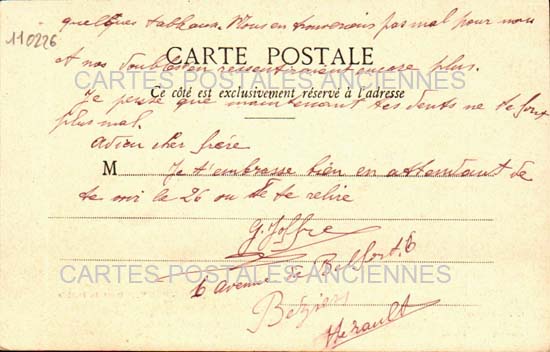 quelques tableaux. Nous en trouverons pas mal pour nous
110226
CARTE POSTALE
et nos doubles en ressentiront encore plus.
CARTES POSTALES ANCIENNES
Ce côté est exclusivement réservé à l'adresse
Je pense que maintenant tes dents ne te font
plus mal.
Adieu cher frère
M Je t'embrasse bien en attendant de
te voir le 26 ou de te relire
G. Joffre
CARTES POSTALES ANCIENNES
6 avenue de Belfort. 6
Béziers
Hérault